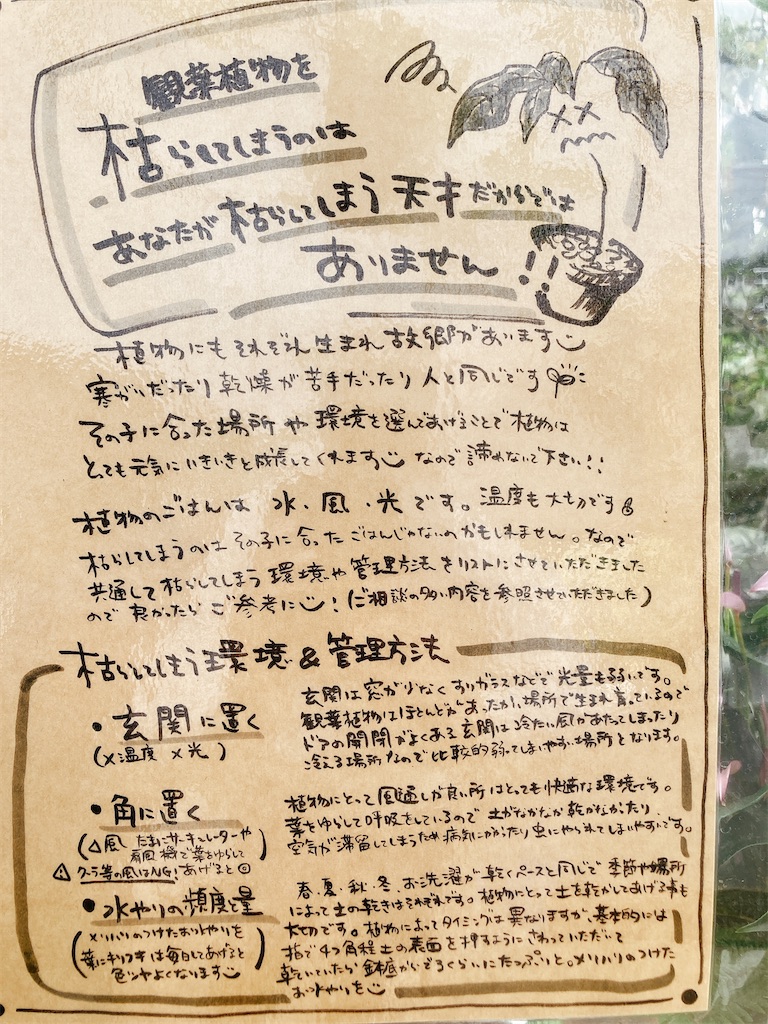 観葉植物を
枯らしてしまうのは
あなたが枯らしてしまう天才だからでは
ありません!!
植物にもそれぞれ生まれ故郷があります
寒がりだったり乾燥が苦手だったり人と同じです
その子に合った場所や環境を選んであげることで植物は
とても元気にいきいきと成長してくれます なので諦めないで下さい!!
植物のごはんは 水・風・光です。温度も大切です
枯らしてしまうのはその子に合ったごはんじゃないのかもしれません。なので
共通して枯らしてしまう環境や管理方法をリストにさせていただきました
ので良かったらご参考に!(ご相談の多い内容を参照させていただきました)
枯らしてしまう環境&管理方法
・玄関に置く
(×温度 ×光)
玄関は窓が少なくすりガラスなどで光量も弱いです。
観葉植物はほとんどがあったかい場所で生まれ育っているので
ドアの開閉がよくある玄関は冷たい風があたってしまったり
冷える場所なので比較的弱ってしまいやすい場所となります。
・角に置く
(△風 たまにサーキュレーターや
扇風機で葉をゆらして
⚠クーラー等の風はNG!あげると◎)
植物にとって風通しが良い所はとっても快適な環境です。
葉をゆらして呼吸をしているので土がなかなか乾かなかったり
空気が滞留してしまうため病気にかかったり虫にやられてしまいやすいです。
・水やりの頻度と量
(メリハリのつけたお水やりを
葉にキリフキは毎日してあげると
色ツヤよくなります)
春・夏・秋・冬、お洗濯が乾くペースと同じで季節や場所
によって土の乾きはそれぞれです。植物にとって土を乾かしてあげる事も
大切です。植物によってタイミングは異なりますが、基本的には
指で4つ角程土の表面を押すようにさわっていただいて
乾いていたら鉢底からでるくらいにたっぷりと。メリハリのつけた
お水やりを